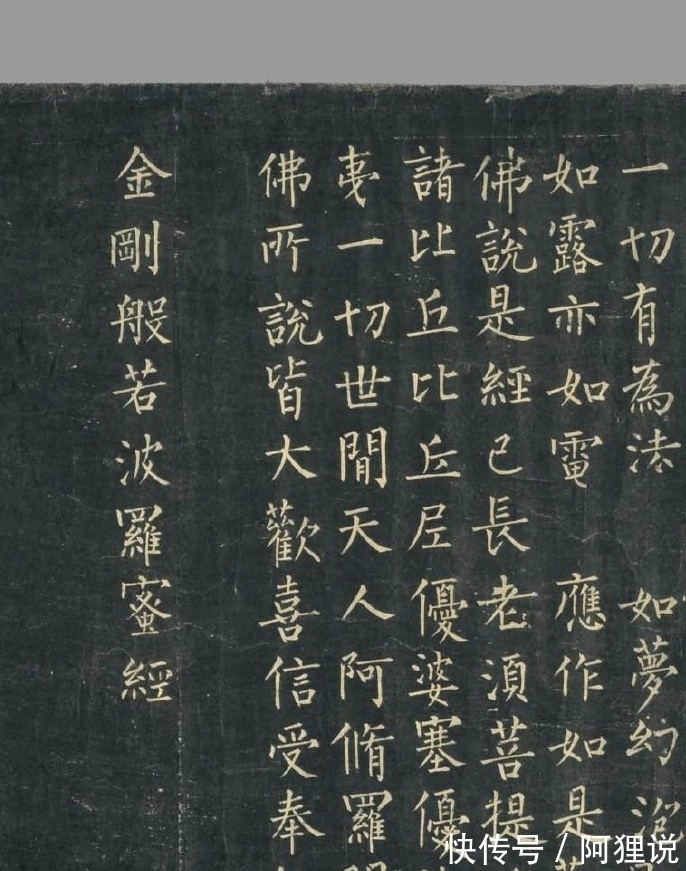 一切有為法 如夢幻泡
如露亦如電 應作如是
佛說是經已長老須菩提
諸比丘比丘尼優婆塞優
夷一切世間天人阿脩羅
佛所說皆大歡喜信受奉
金剛般若波羅蜜經
快传号 / 阿狸说